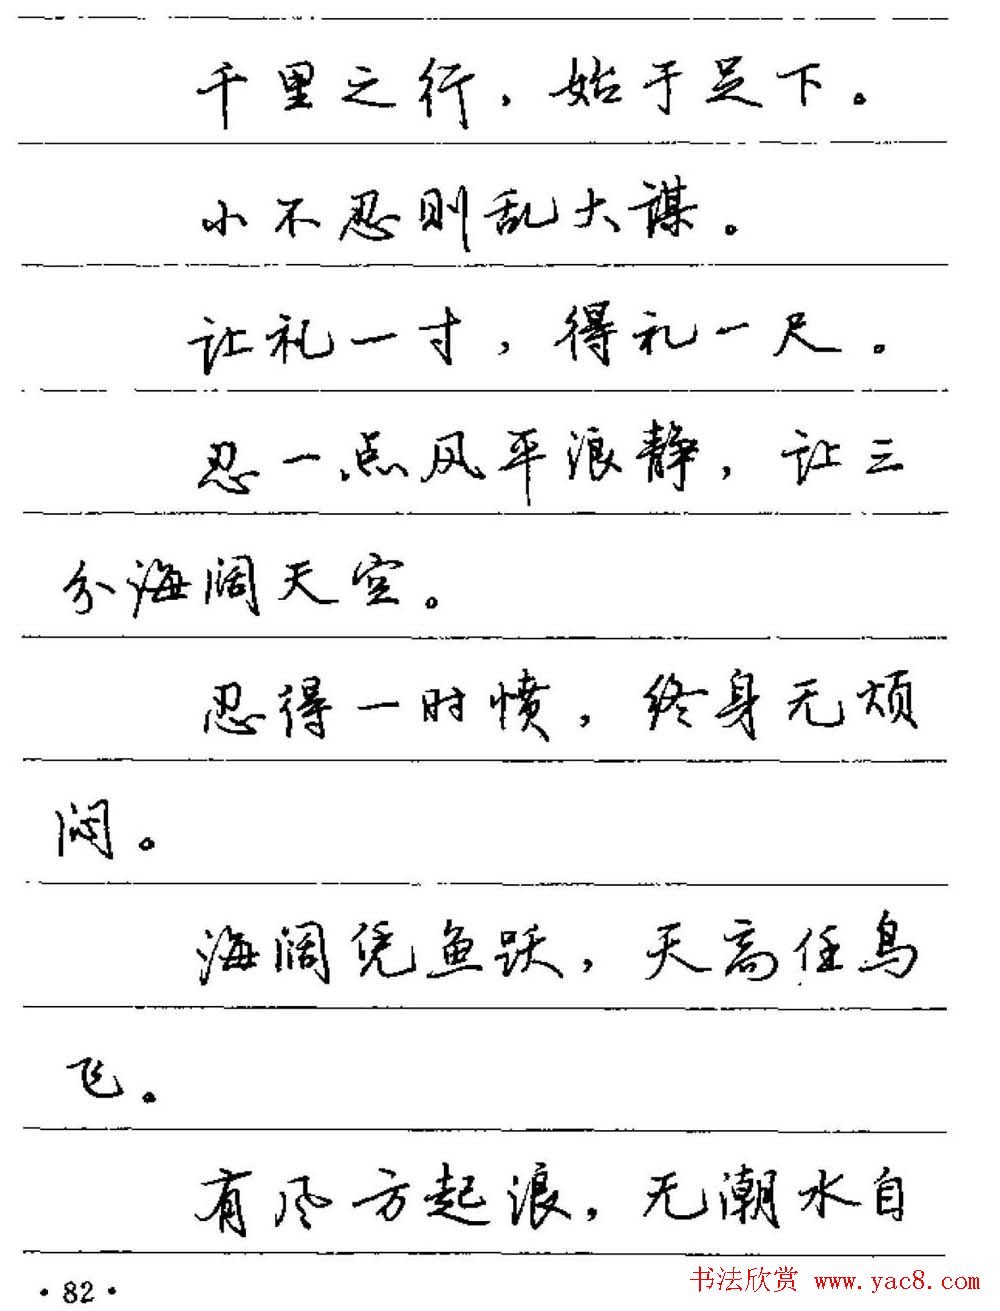 千里之行，始于足下。
小不忍则乱大谋。
让礼一寸，得礼一尺。
忍一点风平浪静，让三
分海阔天空。
忍得一时愤，终身无烦
闷。
海阔凭鱼跃，天高任鸟
飞。
有风方起浪，无潮水自
·82·
书法欣赏 www.yac8.com